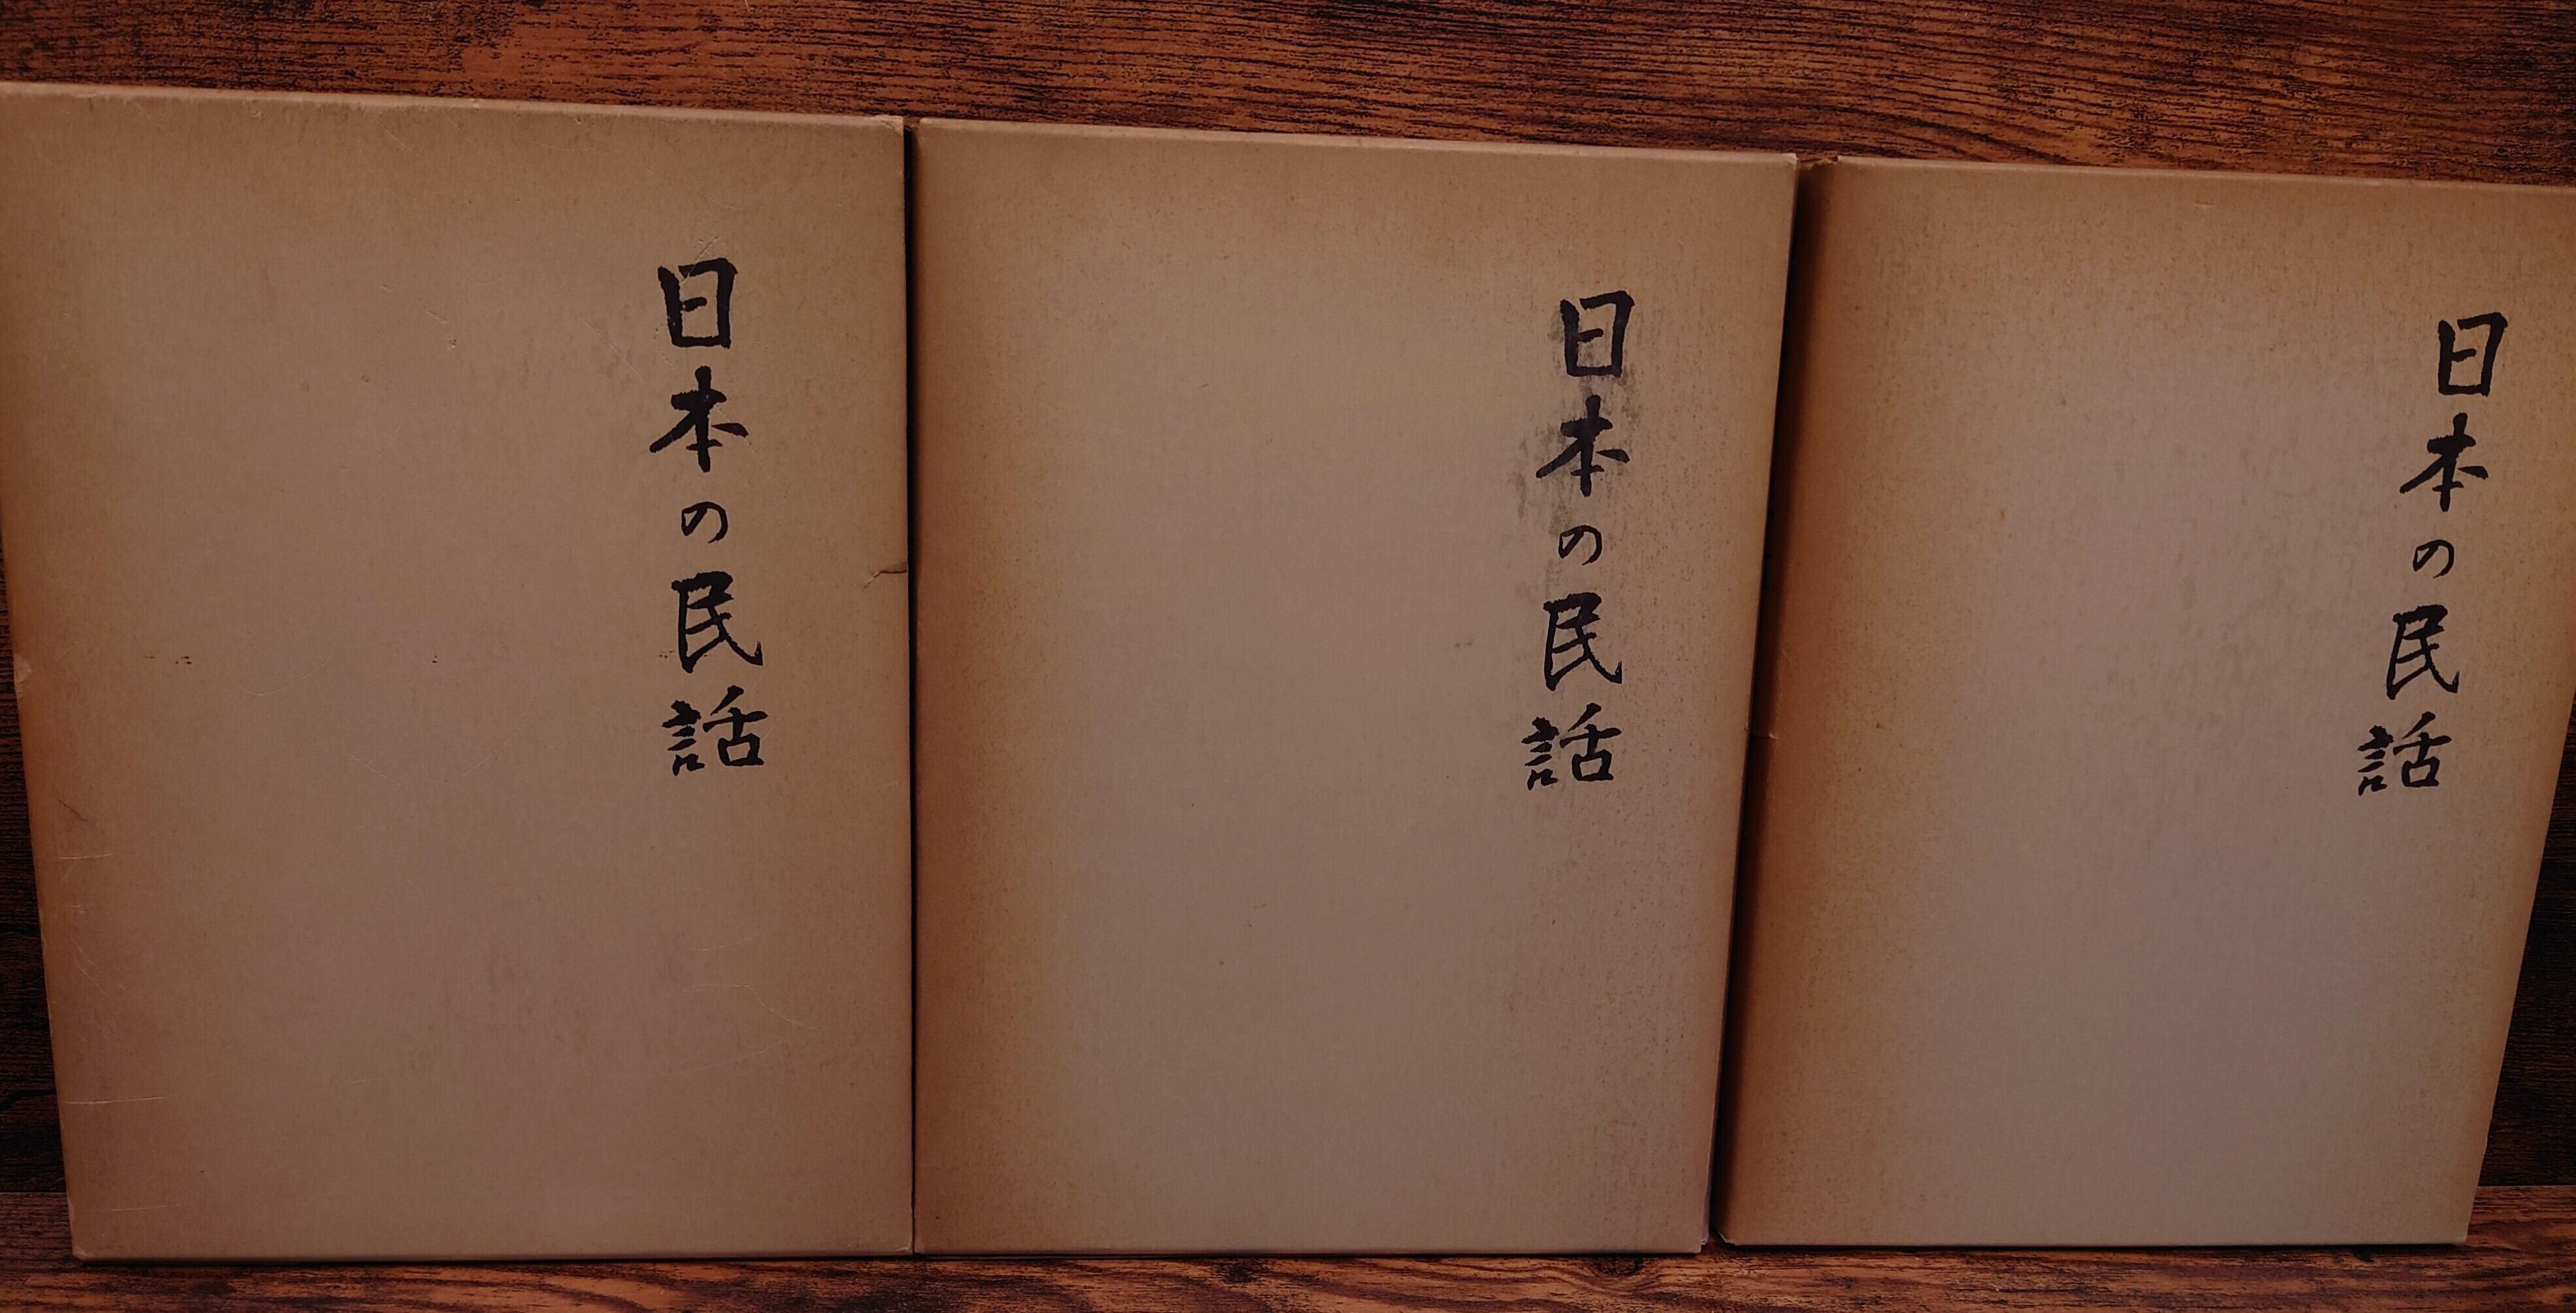 日本の民話
日本の民話
日本の民話